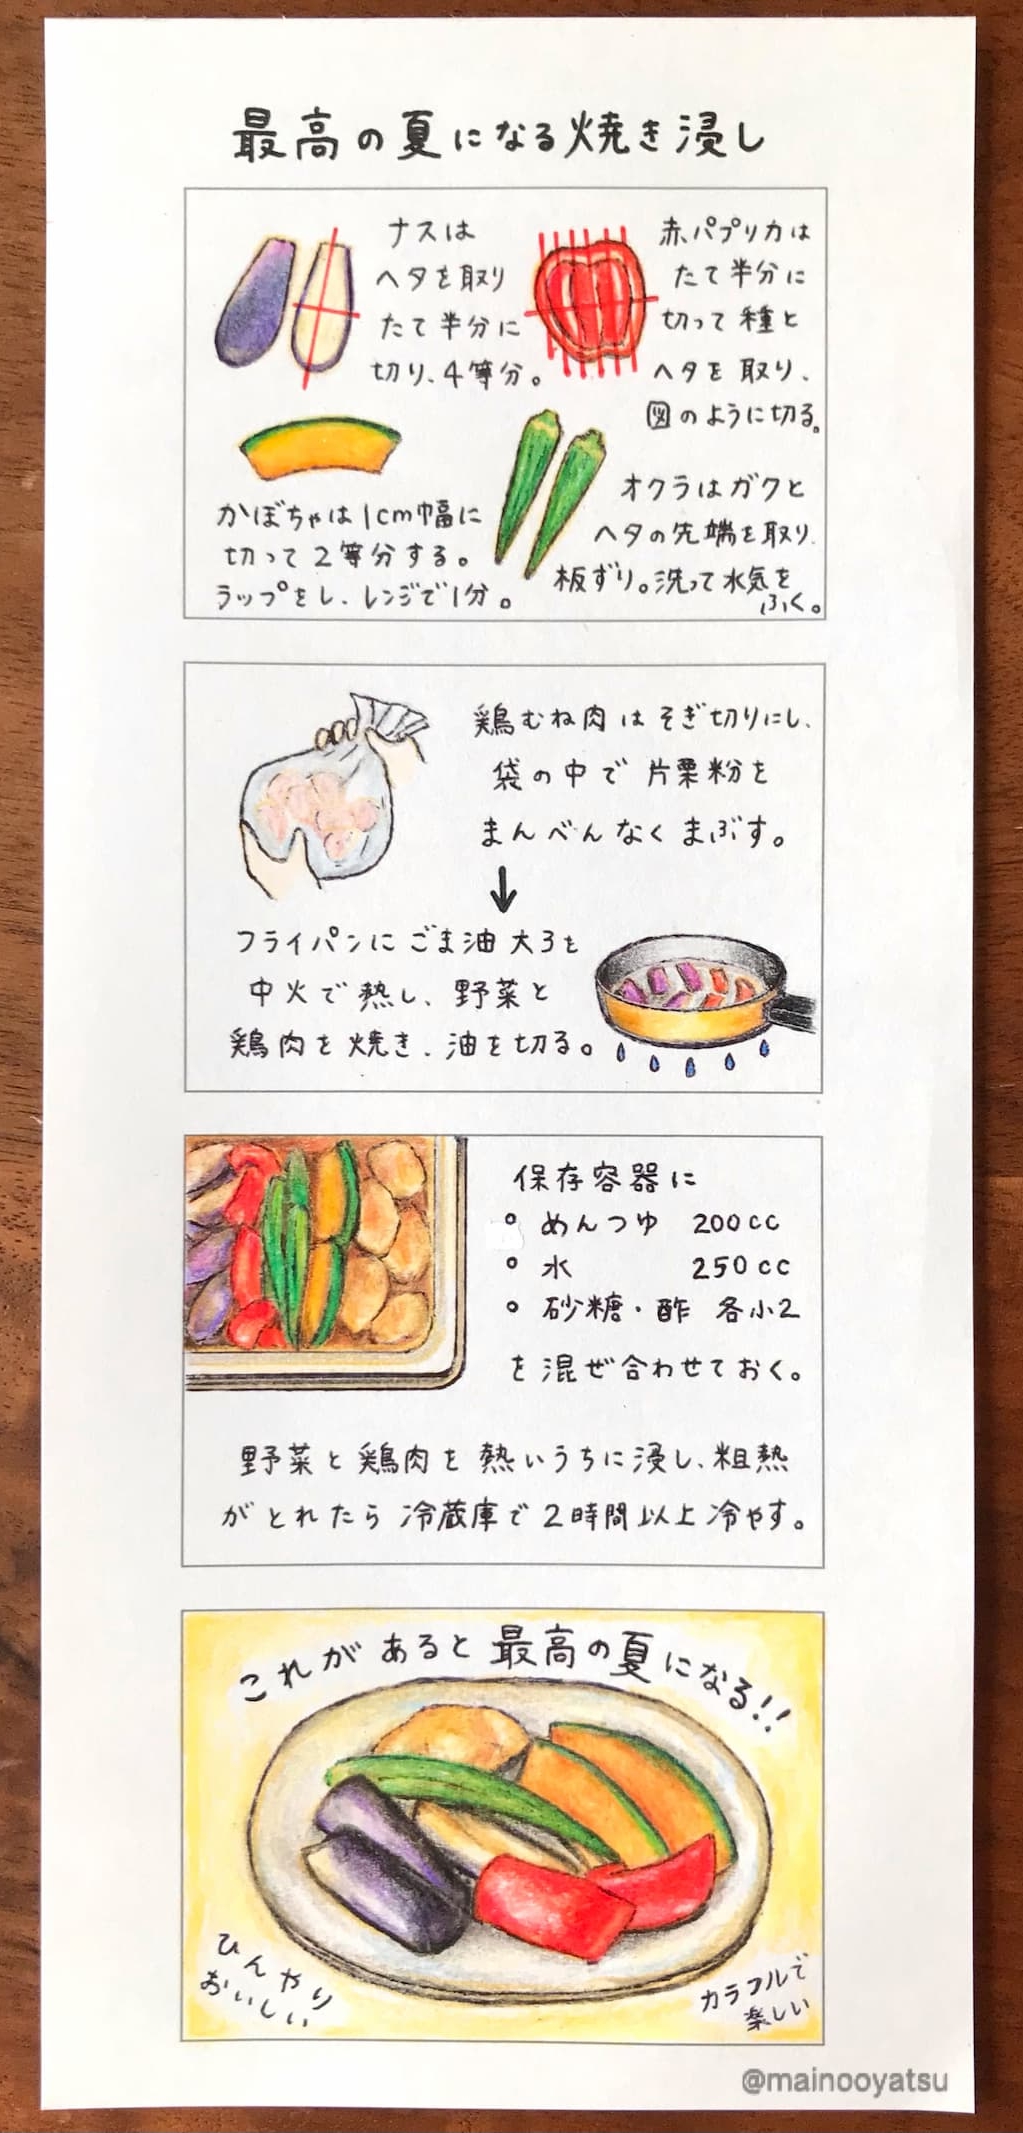 最高の夏になる焼き浸し
ナスは
ヘタを取り
たて半分に
切り、4等分。
赤パプリカは
たて半分に
切って種と
ヘタを取り、
図のように切る。
かぼちゃは1cm幅に
切って2等分する。
ラップをし、レンジで1分。
オクラはガクと
ヘタの先端を取り、
板ずり。洗って水気を
ふく。
鶏むね肉はそぎ切りにし、
袋の中で片栗粉を
まんべんなくまぶす。
↓
フライパンにごま油大3を
中火で熱し、野菜と
鶏肉を焼き、油を切る。
保存容器に
° めんつゆ 200cc
° 水 250cc
° 砂糖・酢 各小2
を混ぜ合わせておく。
野菜と鶏肉を熱いうちに浸し、粗熱
がとれたら冷蔵庫で2時間以上冷やす。
これがあると最高の夏になる!!
ひんやり
おいしい
カラフルで
楽しい
@mainooyatsu